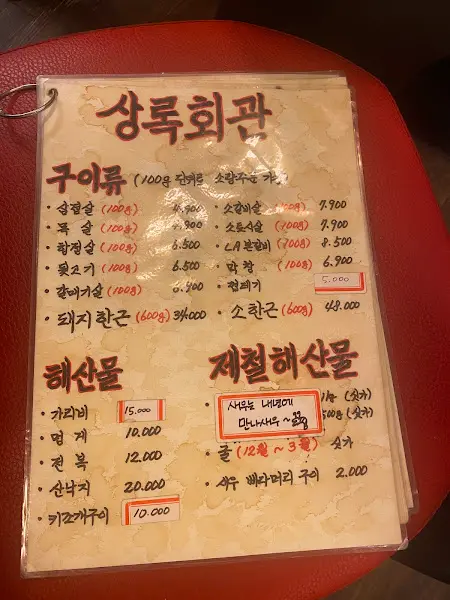 상록회관
구이류 (100g 단위로
· 삼겹살 (100g)
· 목 살 (100g)
· 항정살 (100g) 6.500
· 뒷고기 (100g) 6.500
· 갈매기살 (100g)
· 돼지한근 (600g) 34.000
· 소갈비살 (100g) 7.900
(100g) 7.900
· LA본갈비 (100g) 8.500
· 막 창 (100g) 6.900
· 껍데기 5.000
· 소한근 (600g) 48.000
해산물
· 가리비 15.000
· 멍 게 10.000
· 전 복 12.000
· 산낙지 20.000
· 키조개구이 10.000
제철해산물
새우는 내년에
만나새우~
1kg (싯가)
500g (싯가)
· 굴 (12월 ~ 3월) 싯가
· 새우 빠다머리 구이 2.000